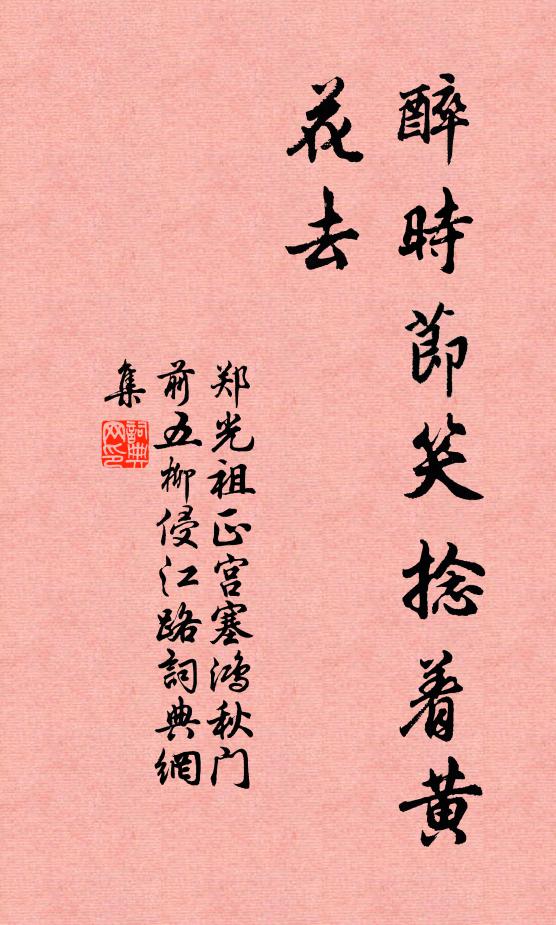 醉時節笑捻着黄
花去
郑光祖正宫塞鸿秋门
前五柳侵江路詞典網
集
詞典
网印